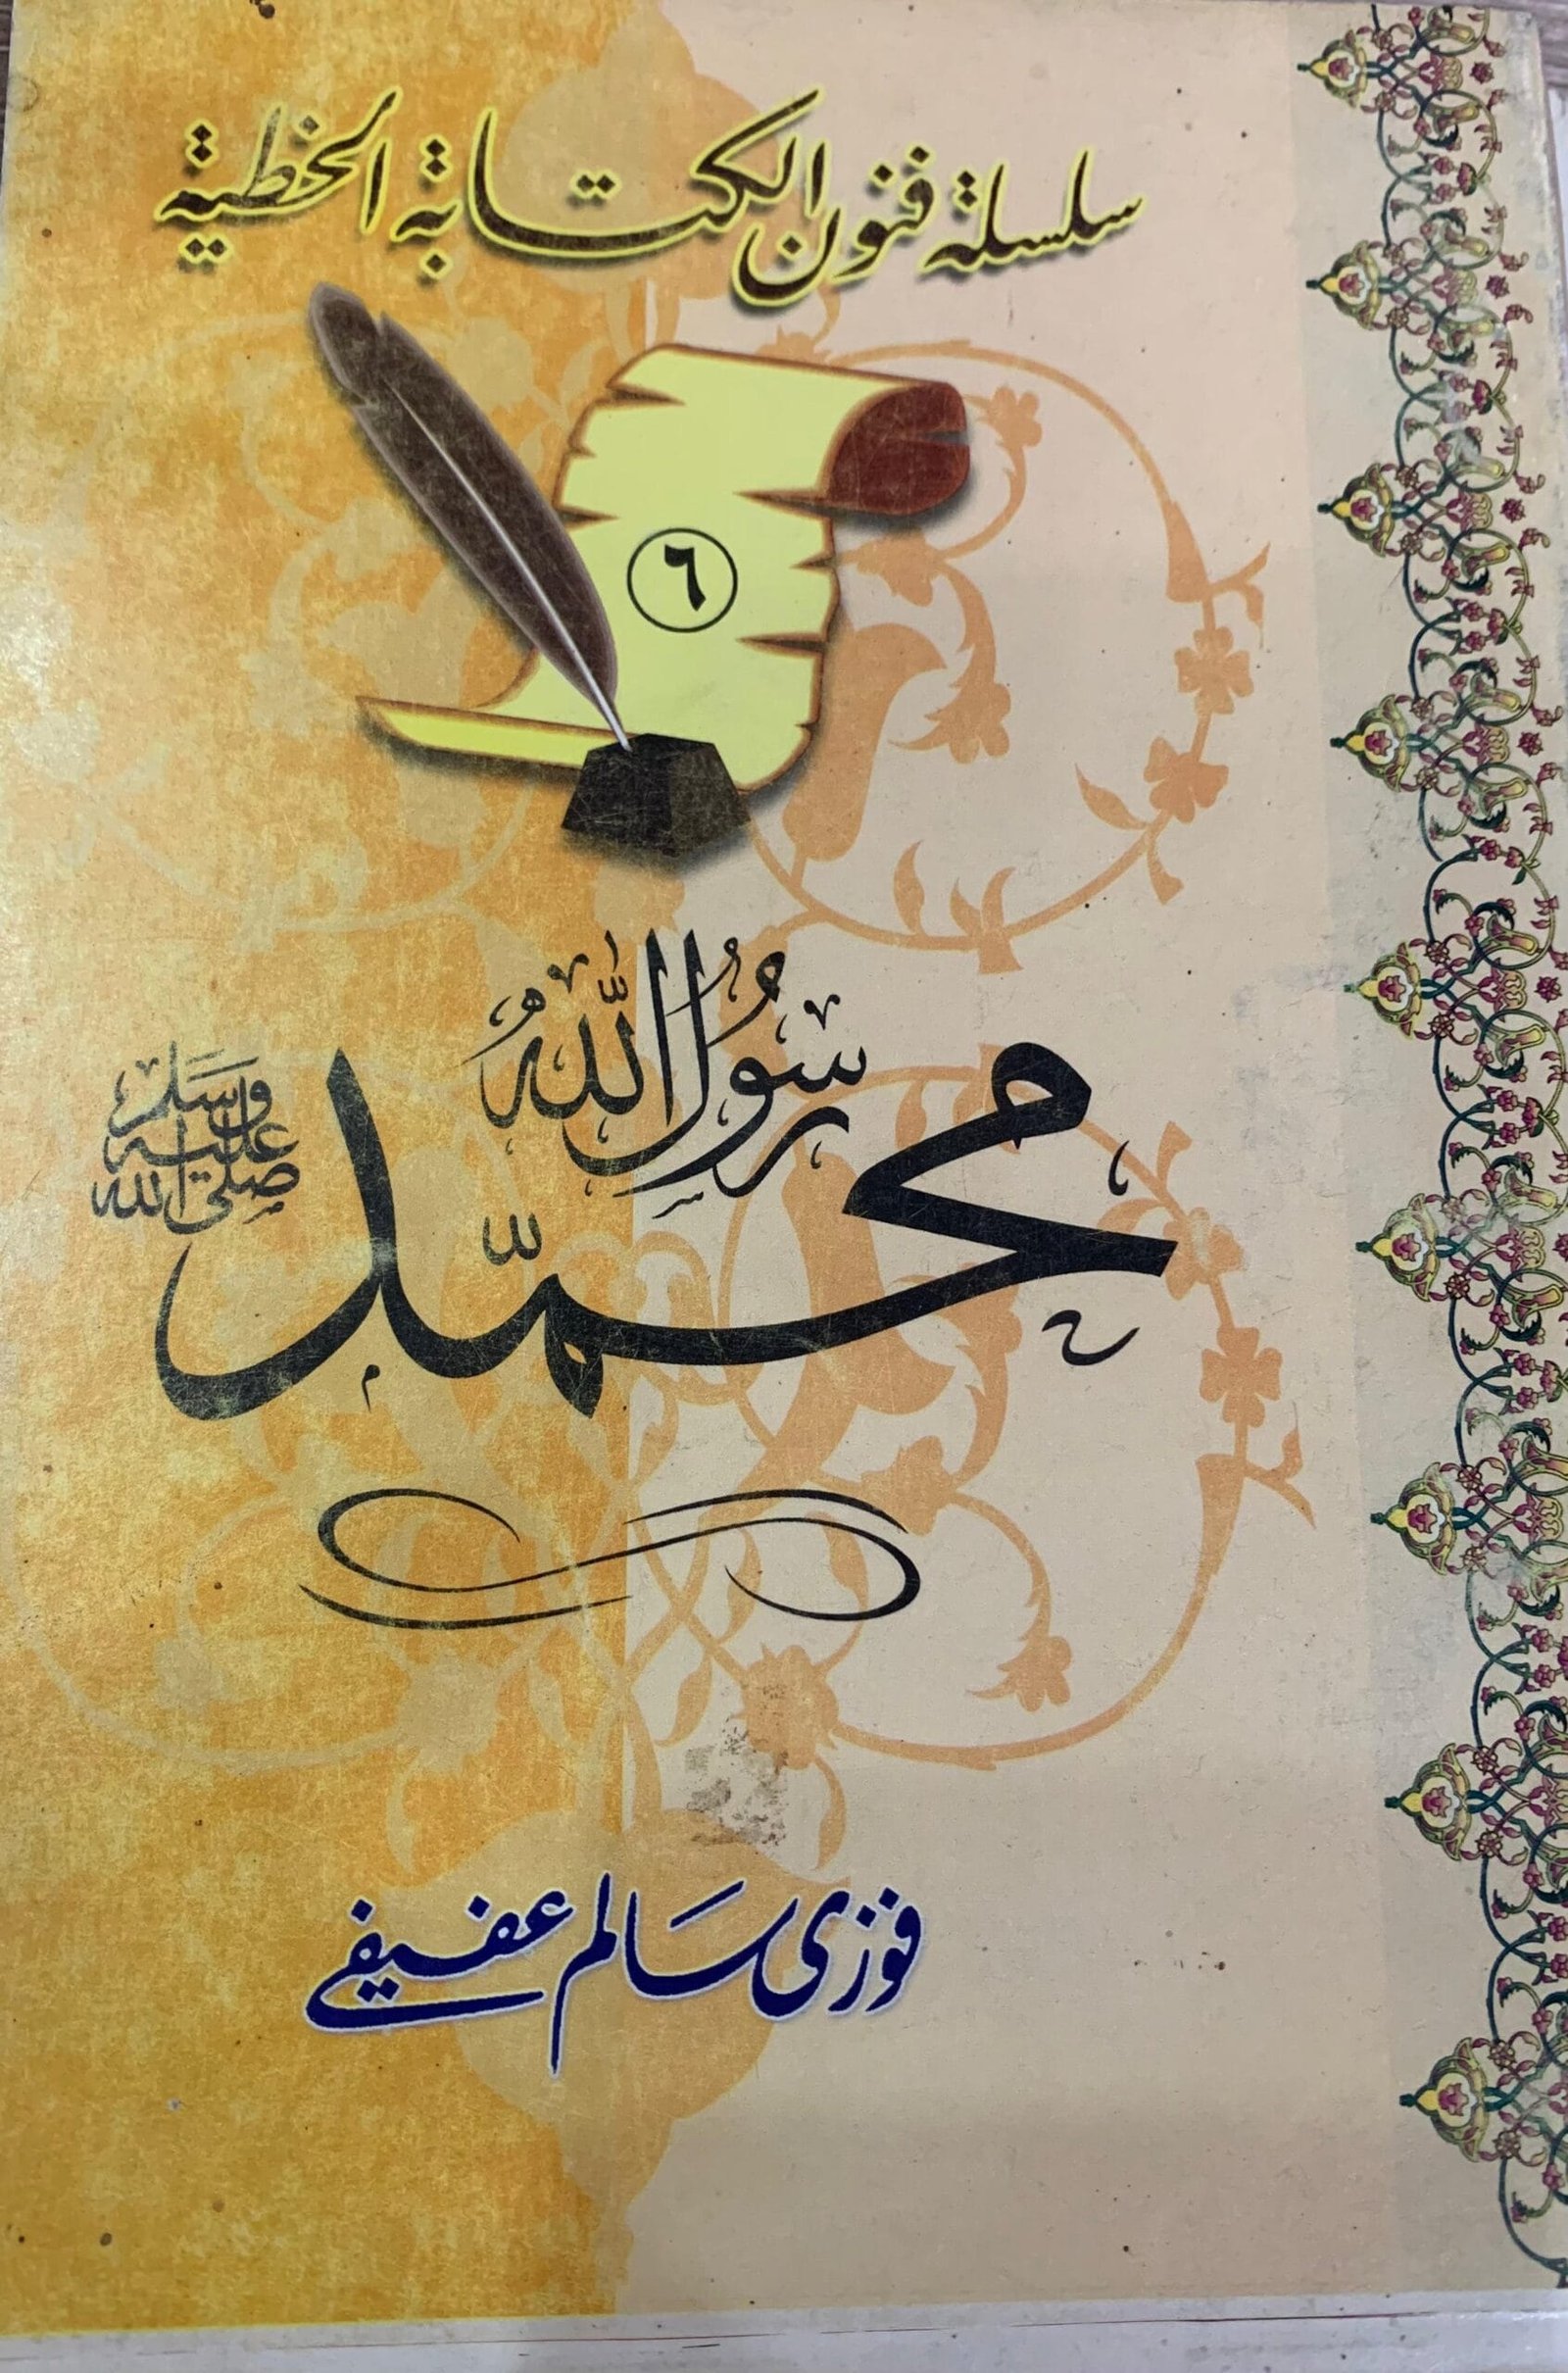 سلسلة فنون الكتابة الخطية
٦
محمّد رسُولُ اللّهُ
صلى الله عليه وسَلم
فوزى سَالم عفيفي